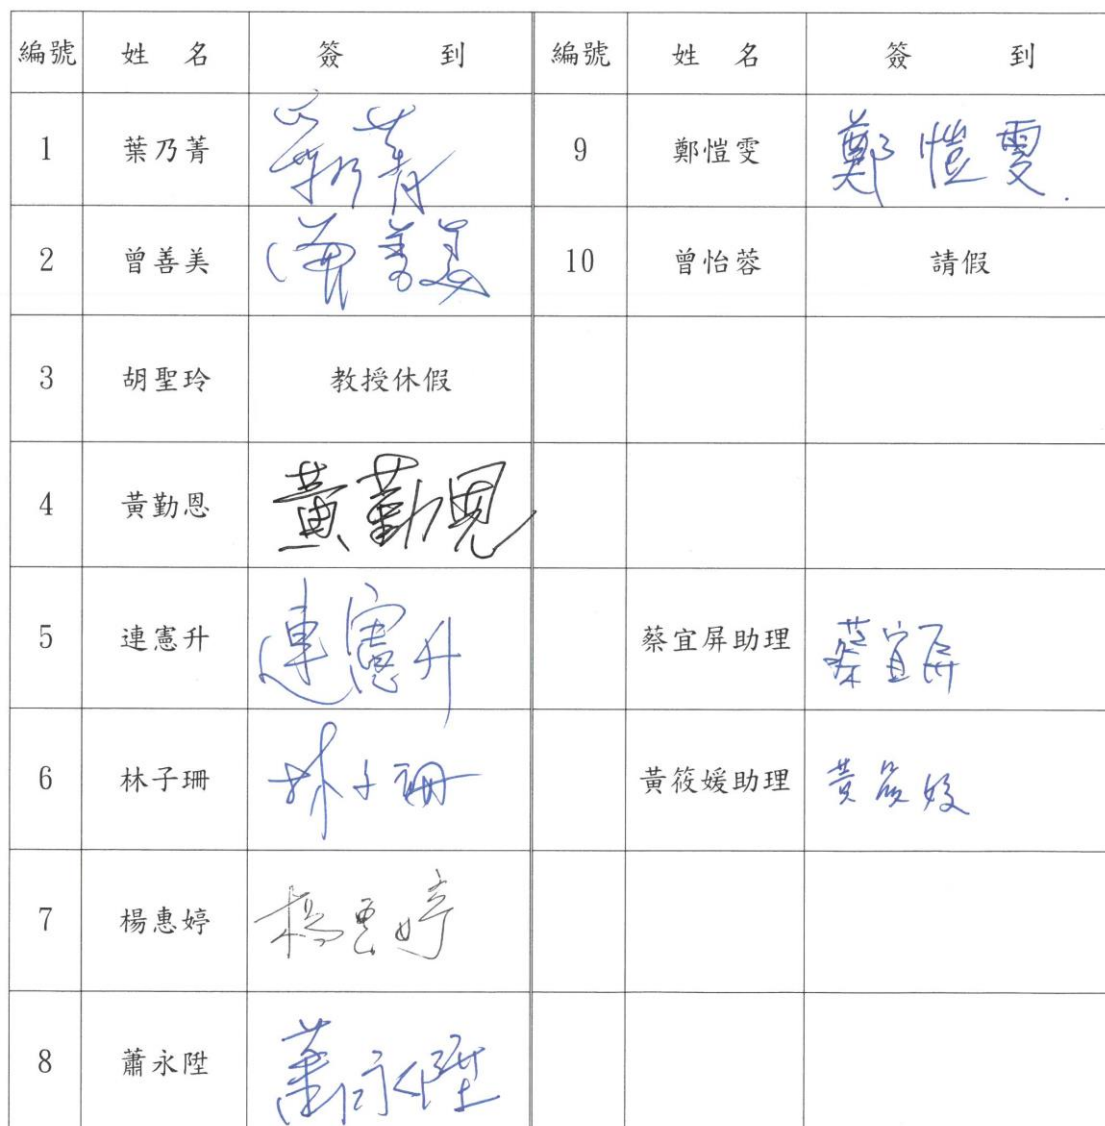 編號 姓名 簽到 編號 姓名 簽到
1 葉乃菁 葉乃菁 9 鄭愷雯 鄭愷雯
2 曾善美 曾善美 10 曾怡蓉 請假
3 胡聖玲 教授休假
4 黃勤恩 黃勤恩
5 連憲升 連憲升 蔡宜屏助理 蔡宜屏
6 林子珊 林子珊 黃筱媛助理 黃筱媛
7 楊惠婷 楊惠婷
8 蕭永陞 蕭永陞